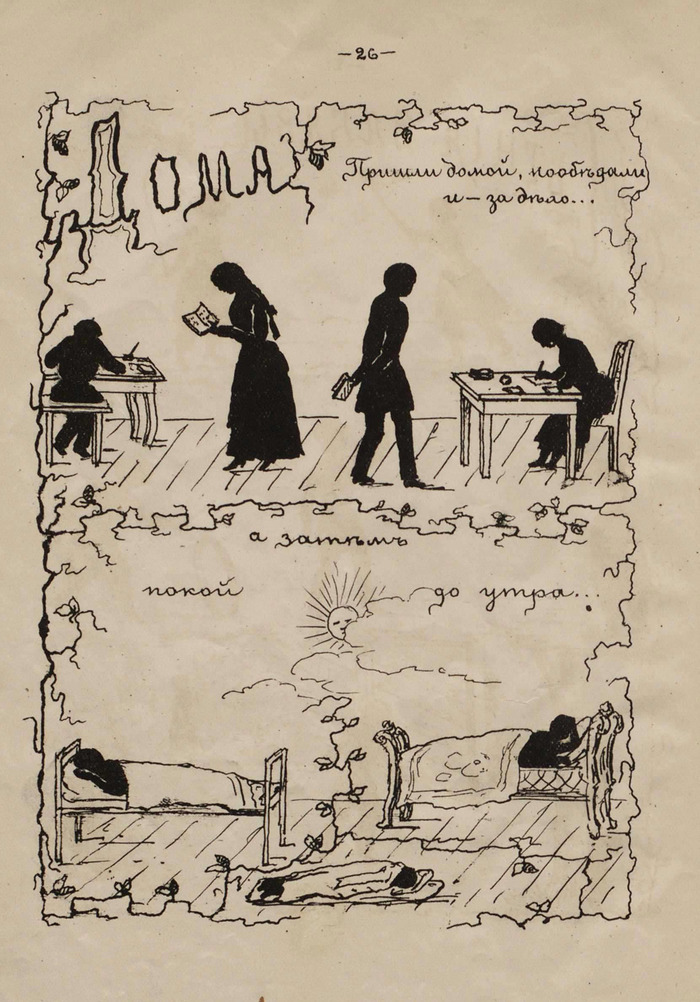 —26—
Дома
Пришли домой, пообѣдали
и — за дѣло...
а затѣмъ
покой до утра...